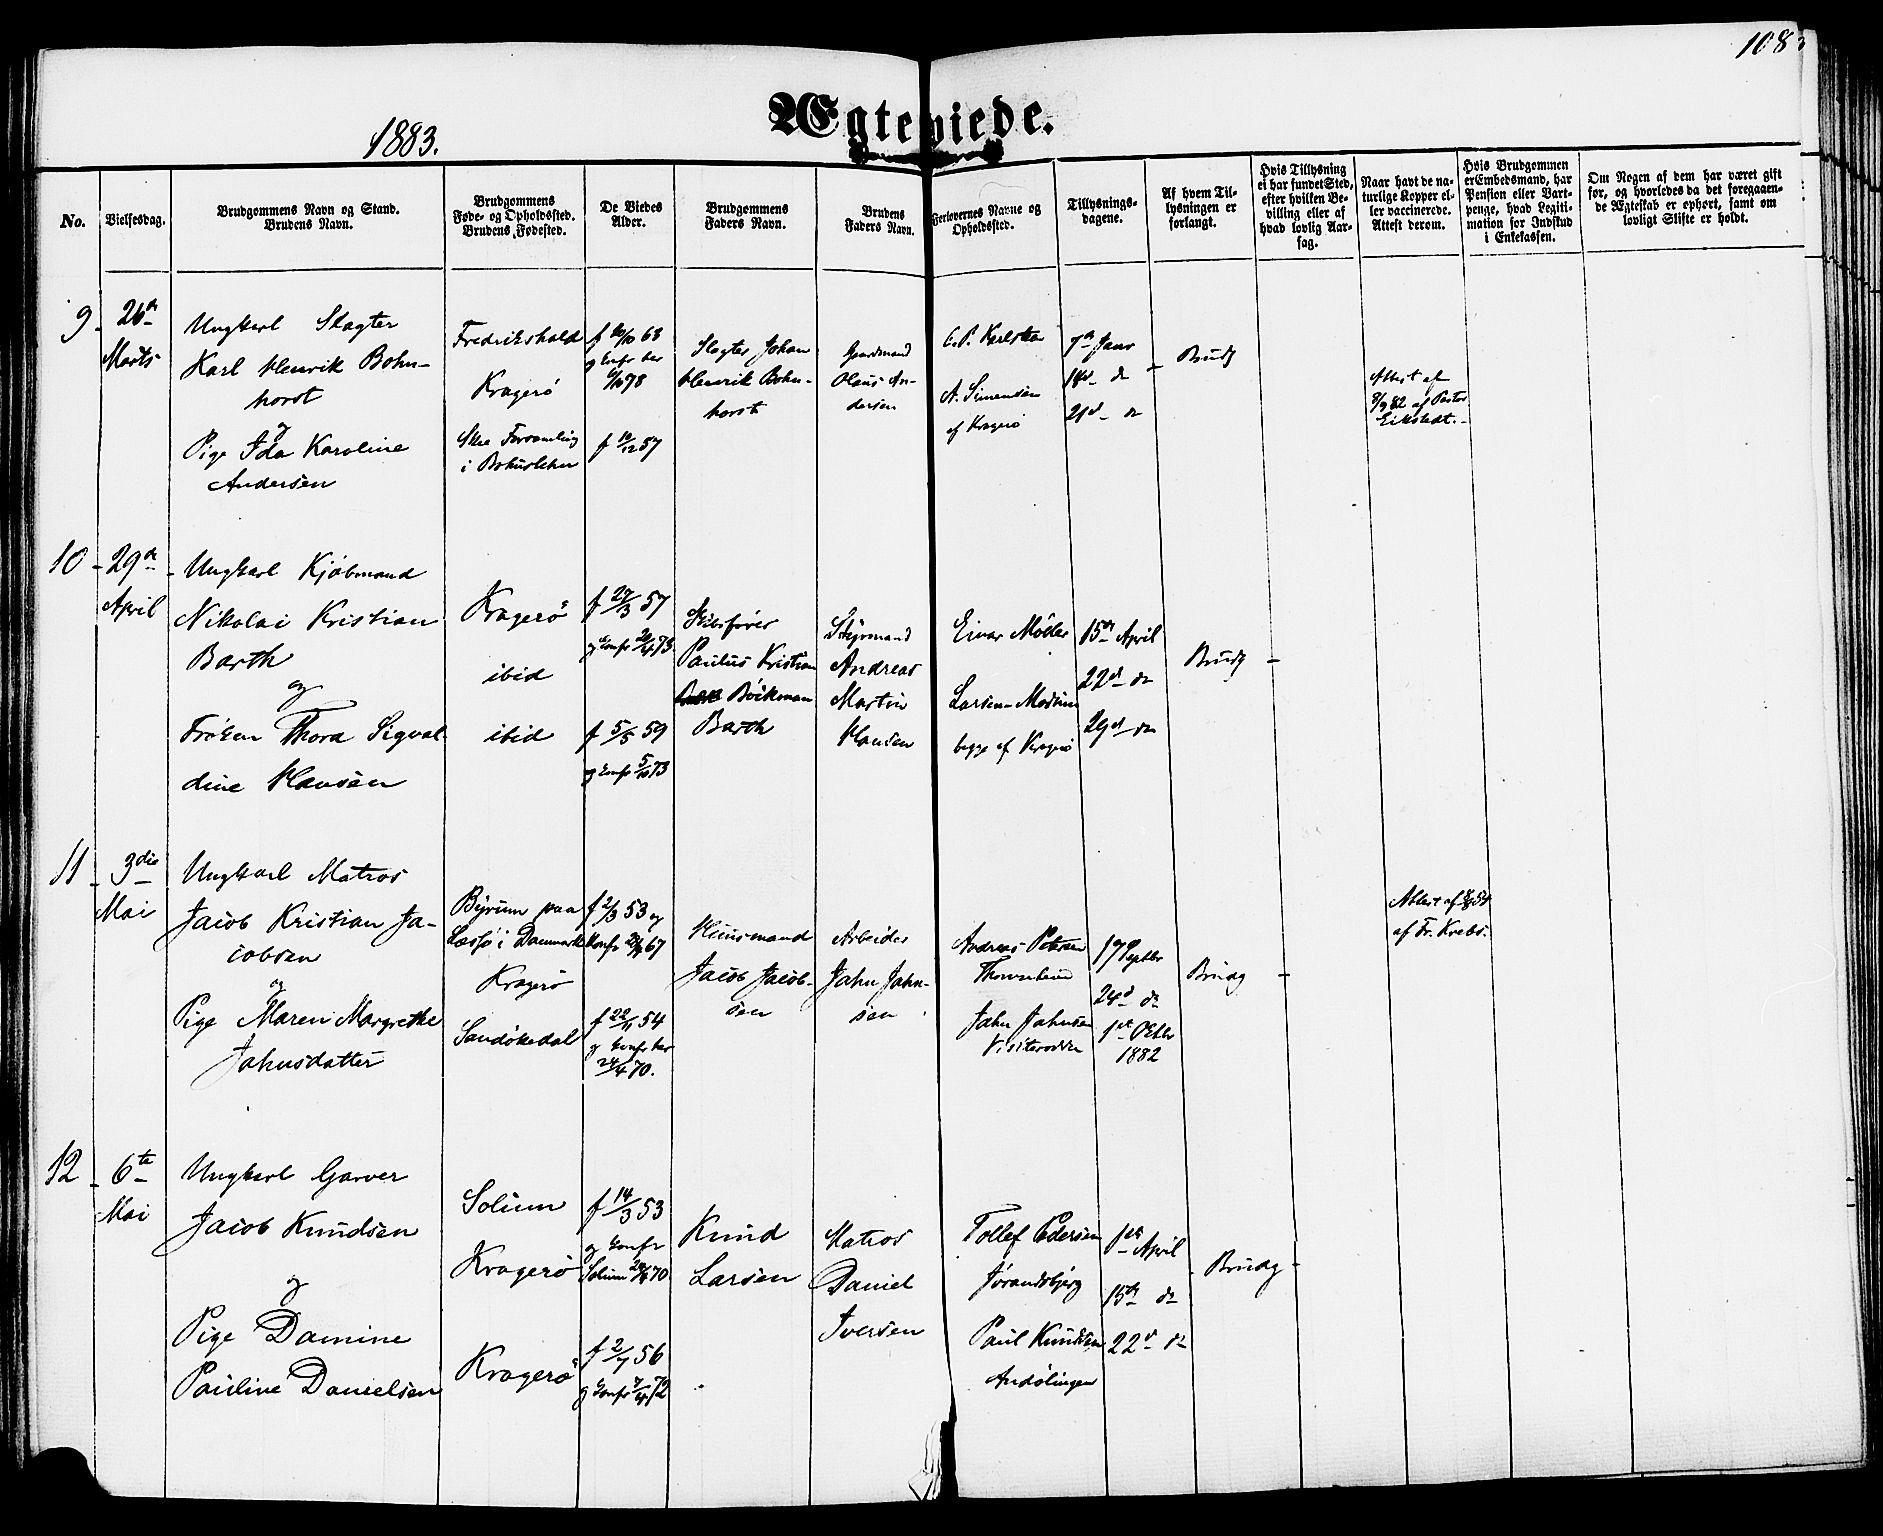 108
1883.
Ægteviede.
No.
Vielsesdag.
Brudgommens Navn og Stand.
Brudens Navn.
Brudgommens
Føde- og Opholdssted.
Brudens Fødested.
De Viedes
Alder.
Brudgommens
Faders Navn.
Brudens
Faders Navn.
Forlovernes Navne og
Opholdssted.
Tillysnings-
dagene.
Af hvem Til-
lysningen er
forlangt.
Hvis Tillysning
ei har fundet Sted,
efter hvilken Be-
villing eller af
hvad lovlig Aar-
sag.
Naar havt de na-
turlige Kopper el-
ler vaccinerede.
Attest derom.
Hvis Brudgommen
er Embedsmand, har
Pension eller Vart-
penge, hvad Legiti-
mation for Indskud
i Enkekassen.
Om Nogen af dem har været gift
før, og hvorledes da det foregaaen-
de Ægteskab er ophørt, samt om
lovligt Skifte er holdt.
9
26de
Marts
Ungkarl Slagter
Karl Henrik Bohn-
horst
og
Pige Ida Karoline
Andersen
Fredrikshald
Kragerö
Skee Forsamling
i Bohuslehn
f 63
og Confr her
78
f 10/12 57
Slagter Johan
Henrik Bohn-
horst
Gaardmand
Olaus An-
dersen
C. P.
A. Simensen
af Kragerö
7de Janr
18d do
21d do
Brudg
Attest af
82 af Pastor
Eikstedt.
10
29de
April
Ungkarl Kjöbmand
Nikolai Kristian
Barth
og
Fröken Thora Sigval
dine Hansen
Kragerö
ibid
ibid
f 27/3 57
og Confr 73
f 5/5 59
og Confr 5/10 73
Skibsförer
Paulus Kristian
Böckman
Barth
Styrmand
Andreas
Martin
Hansen
Einar Möller
Larsen
begge af Kragerö
15de April
22d do
29d do
Brudg
11
3die
Mai
Ungkarl Matros
Jacob Kristian Ja-
cobsen
og
Pige Maren Margrethe
Jahnsdatter
Byrum paa
Læssö i Danmark
Kragerö
Sandökedal
f 2/3 53 og
Confr 67
f 22/11 54
og Confr her
24/4 70.
Huusmand
Jacob Jacob-
sen
Arbeider
Jahn Jahn-
sen
Andreas Petersen
Jahn Jahnsen
17 Septbr
24d do
1st Octbr
1882
Brudg
Attest af 54
af Fr. Krebs.
12
6te
Mai
Ungkarl Garver
Jacob Knudsen
og
Pige Damine
Pauline Danielsen
Solum
Kragerö
Kragerö
f 14/3 53
og Confr
Solum 70
f 2/7 56
og Confr 7/4 72
Knud
Larsen
Matros
Daniel
Iversen
Tollef Pedersen
Jörandsbjerg
Paul Knudsen
Andölingen
1ste April
15de do
22d do
Brudg